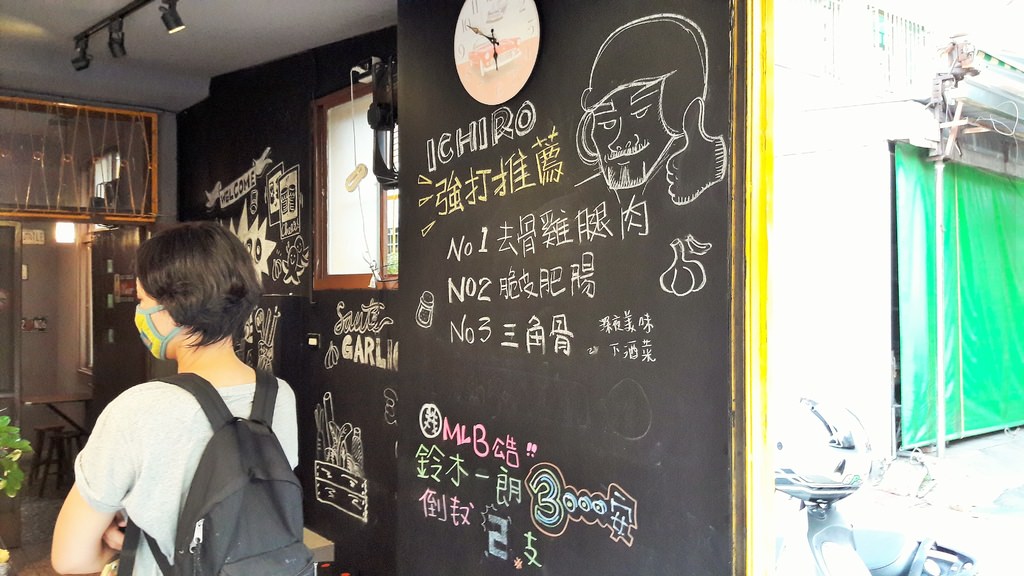 WELCOME
Sauté
GARLIC
ICHIRO
強打推薦
No1 去骨雞腿肉
NO2 脆皮肥腸
No3 三角骨
深夜美味
下酒菜
MLB公告!!
鈴木一朗 3000安
倒数 2支